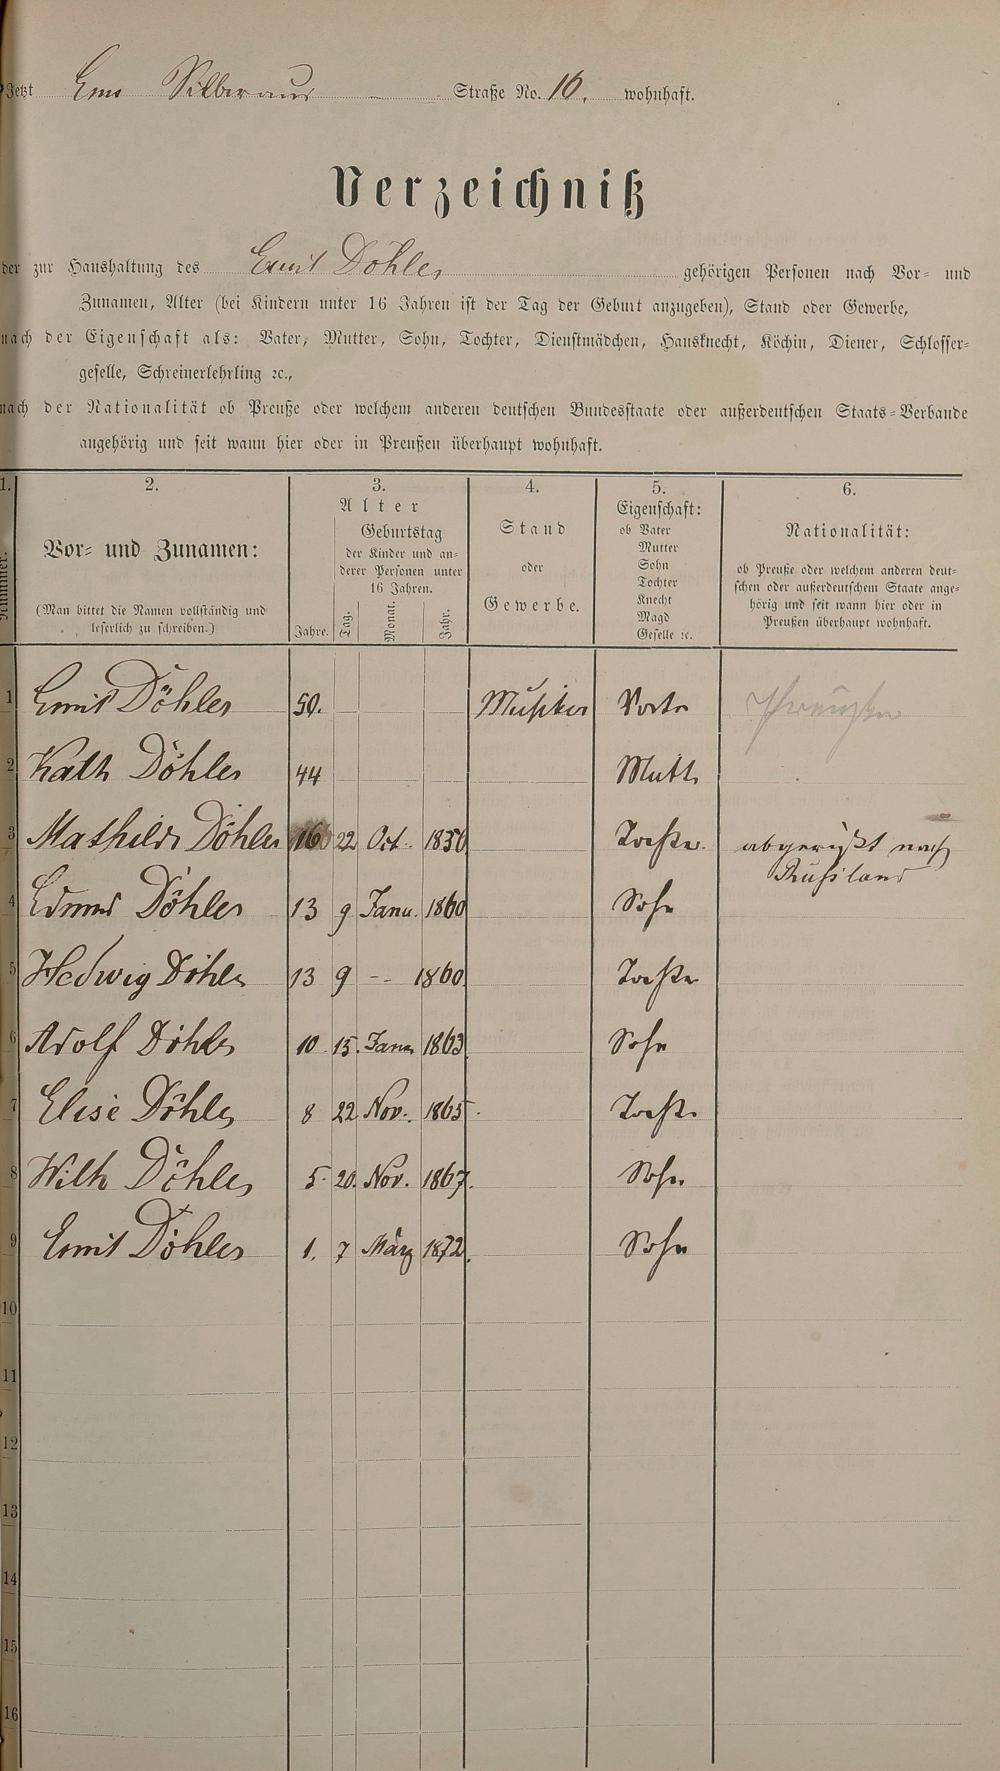 Jetzt Ems Silberau Straße No. 16. wohnhaft.
Verzeichniß
der zur Haushaltung des Emil Döhler gehörigen Personen nach Vor- und
Zunamen, Alter (bei Kindern unter 16 Jahren ist der Tag der Geburt anzugeben), Stand oder Gewerbe,
nach der Eigenschaft als: Vater, Mutter, Sohn, Tochter, Dienstmädchen, Hausknecht, Köchin, Diener, Schlosser-
geselle, Schreinerlehrling ꝛc.,
nach der Nationalität ob Preuße oder welchem anderen deutschen Bundesstaate oder außerdeutschen Staats-Verbande
angehörig und seit wann hier oder in Preußen überhaupt wohnhaft.
1. 2. 3. 4. 5. 6.
Nummer.
Vor- und Zunamen:
(Man bittet die Namen vollständig und
leserlich zu schreiben.)
Alter
Jahre.
Geburtstag
der Kinder und an-
derer Personen unter
16 Jahren.
Tag. Monat. Jahr.
Stand
oder
Gewerbe.
Eigenschaft:
ob Vater
Mutter
Sohn
Tochter
Knecht
Magd
Geselle ꝛc.
Nationalität:
ob Preuße oder welchem anderen deut-
schen oder außerdeutschem Staate ange-
hörig und seit wann hier oder in
Preußen überhaupt wohnhaft.
1 Emil Döhler 50. Musiker Vater Preußen
2 Kath Döhler 44 Mutter
3 Mathilde Döhler 16 22 Oct. 1856 Tochter. abgereißt nach
Rußland
4 Edmund Döhler 13 9 Janu. 1860 Sohn
5 Hedwig Döhler 13 9 -- 1860 Tochter
6 Adolf Döhler 10 15. Janu 1863 Sohn
7 Elise Döhler 8 22 Nov. 1865. Tochter
8 Wilh Döhler 5. 20. Nov. 1867. Sohn
9 Emil Döhler 1. 7 März 1872. Sohn
10
11
12
13
14
15
16